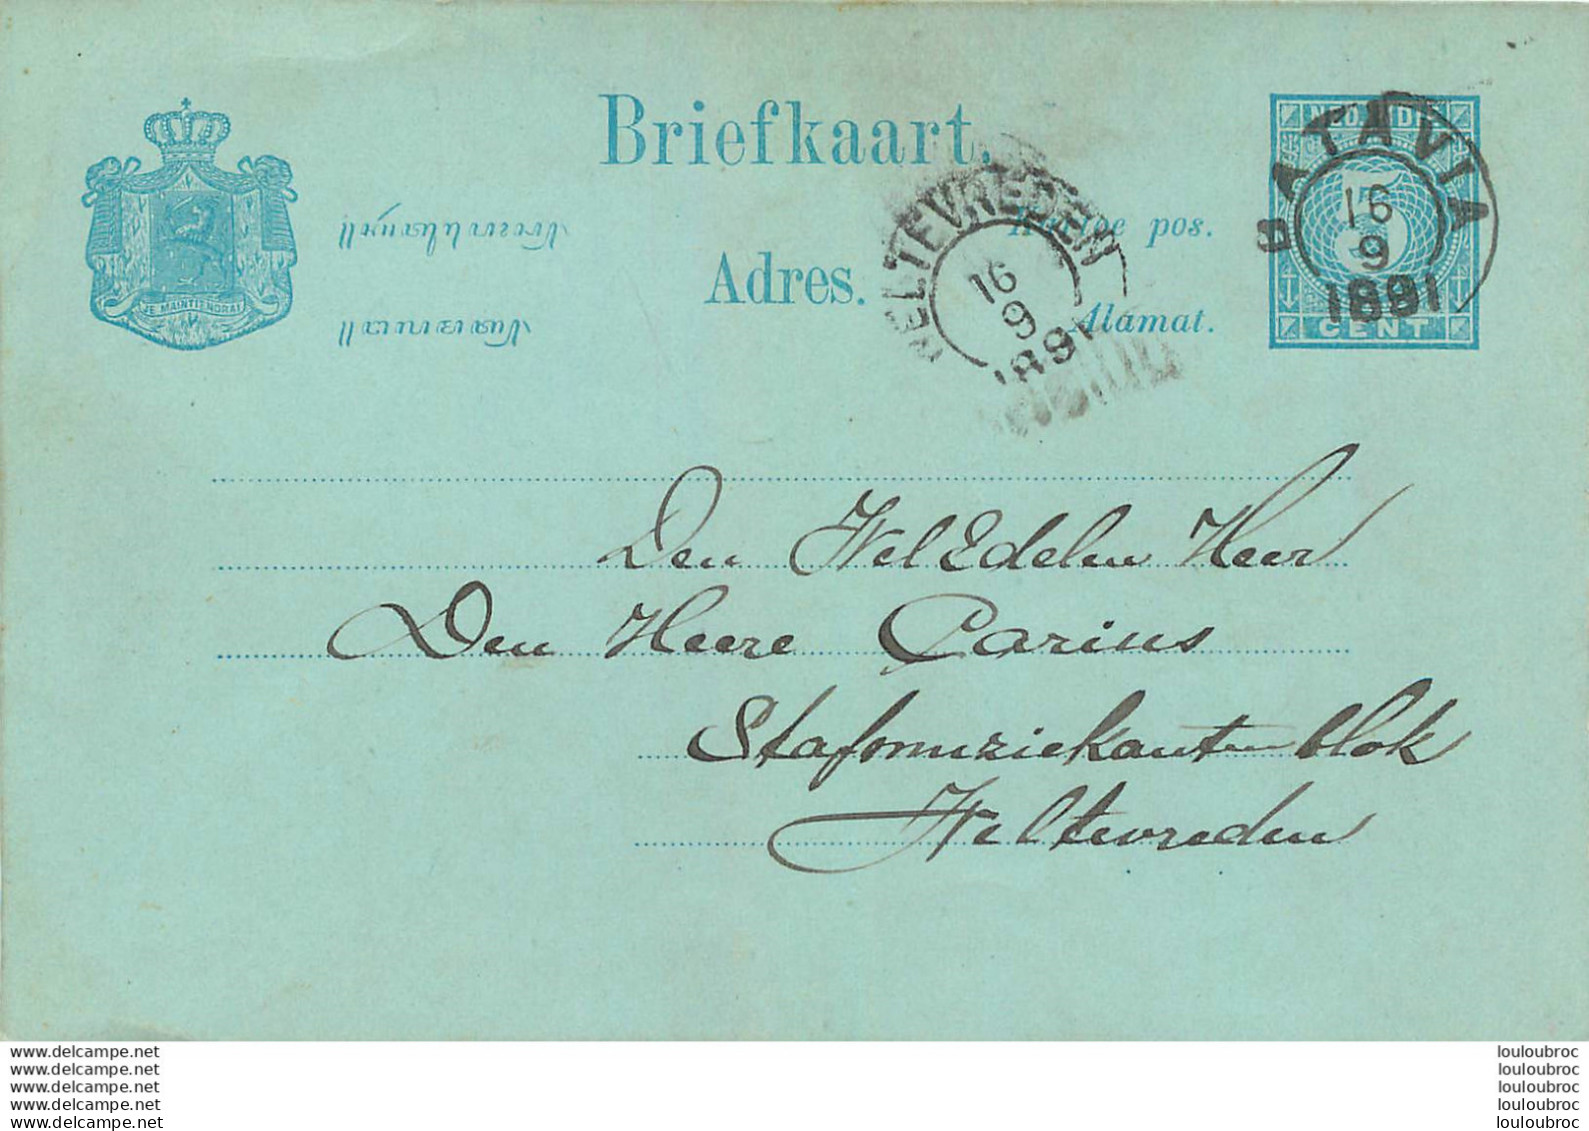 Briefkaart.
pos.
Adres.
Alamat.
JE MAINTIENDRAI
WELTEVREDEN
16
9
1891
BATAVIA
16
9
1891
5
CENT
Den Wel Edelen Heer
Den Heere Carius
Stafmuziekant blok
Weltevreden
www.delcampe.net
www.delcampe.net
www.delcampe.net
www.delcampe.net
www.delcampe.net
louloubroc
louloubroc
louloubroc
louloubroc
louloubroc